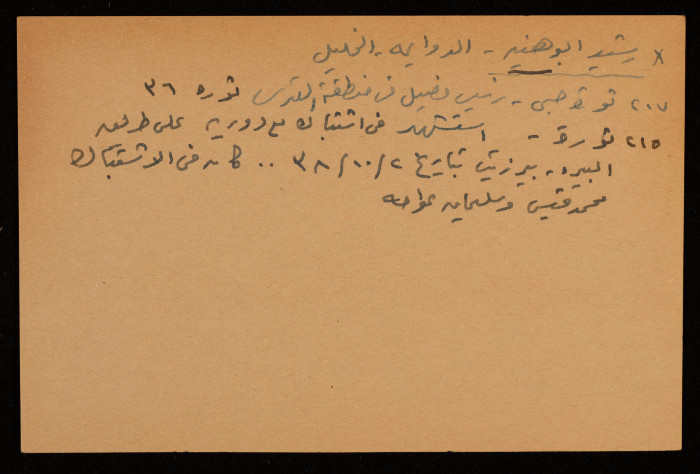 x رشيد ابو هنيه - الدوايمه - الخليل
٢٠٧ - رئيس فصيل في منطقة القدس ثورة ٣٦
٢١٥ ثورة - استشهد في اشتباك مع دوريه على طريق
البيره - بيرزيت بتاريخ ٣٨/١٠/٢ .. كان في الاشتباك
محمد قيس وسليمان